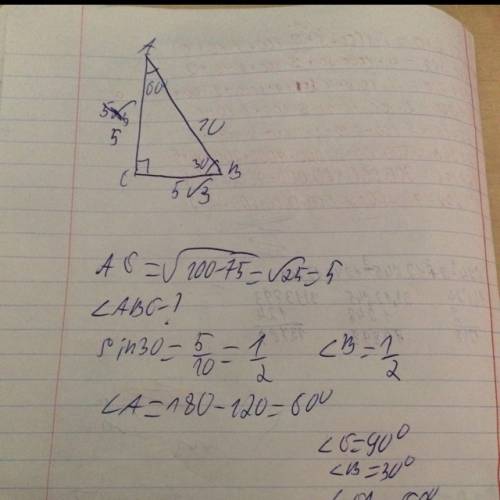 A
60
5√3
5
10
30
C
B
5√3
AC = √100-75 = √25 = 5
∠ABC-?
sin30 = 5/10 = 1/2 ∠B = 1/2
∠A = 180 - 120 = 60°
∠C = 90°
∠B = 30°